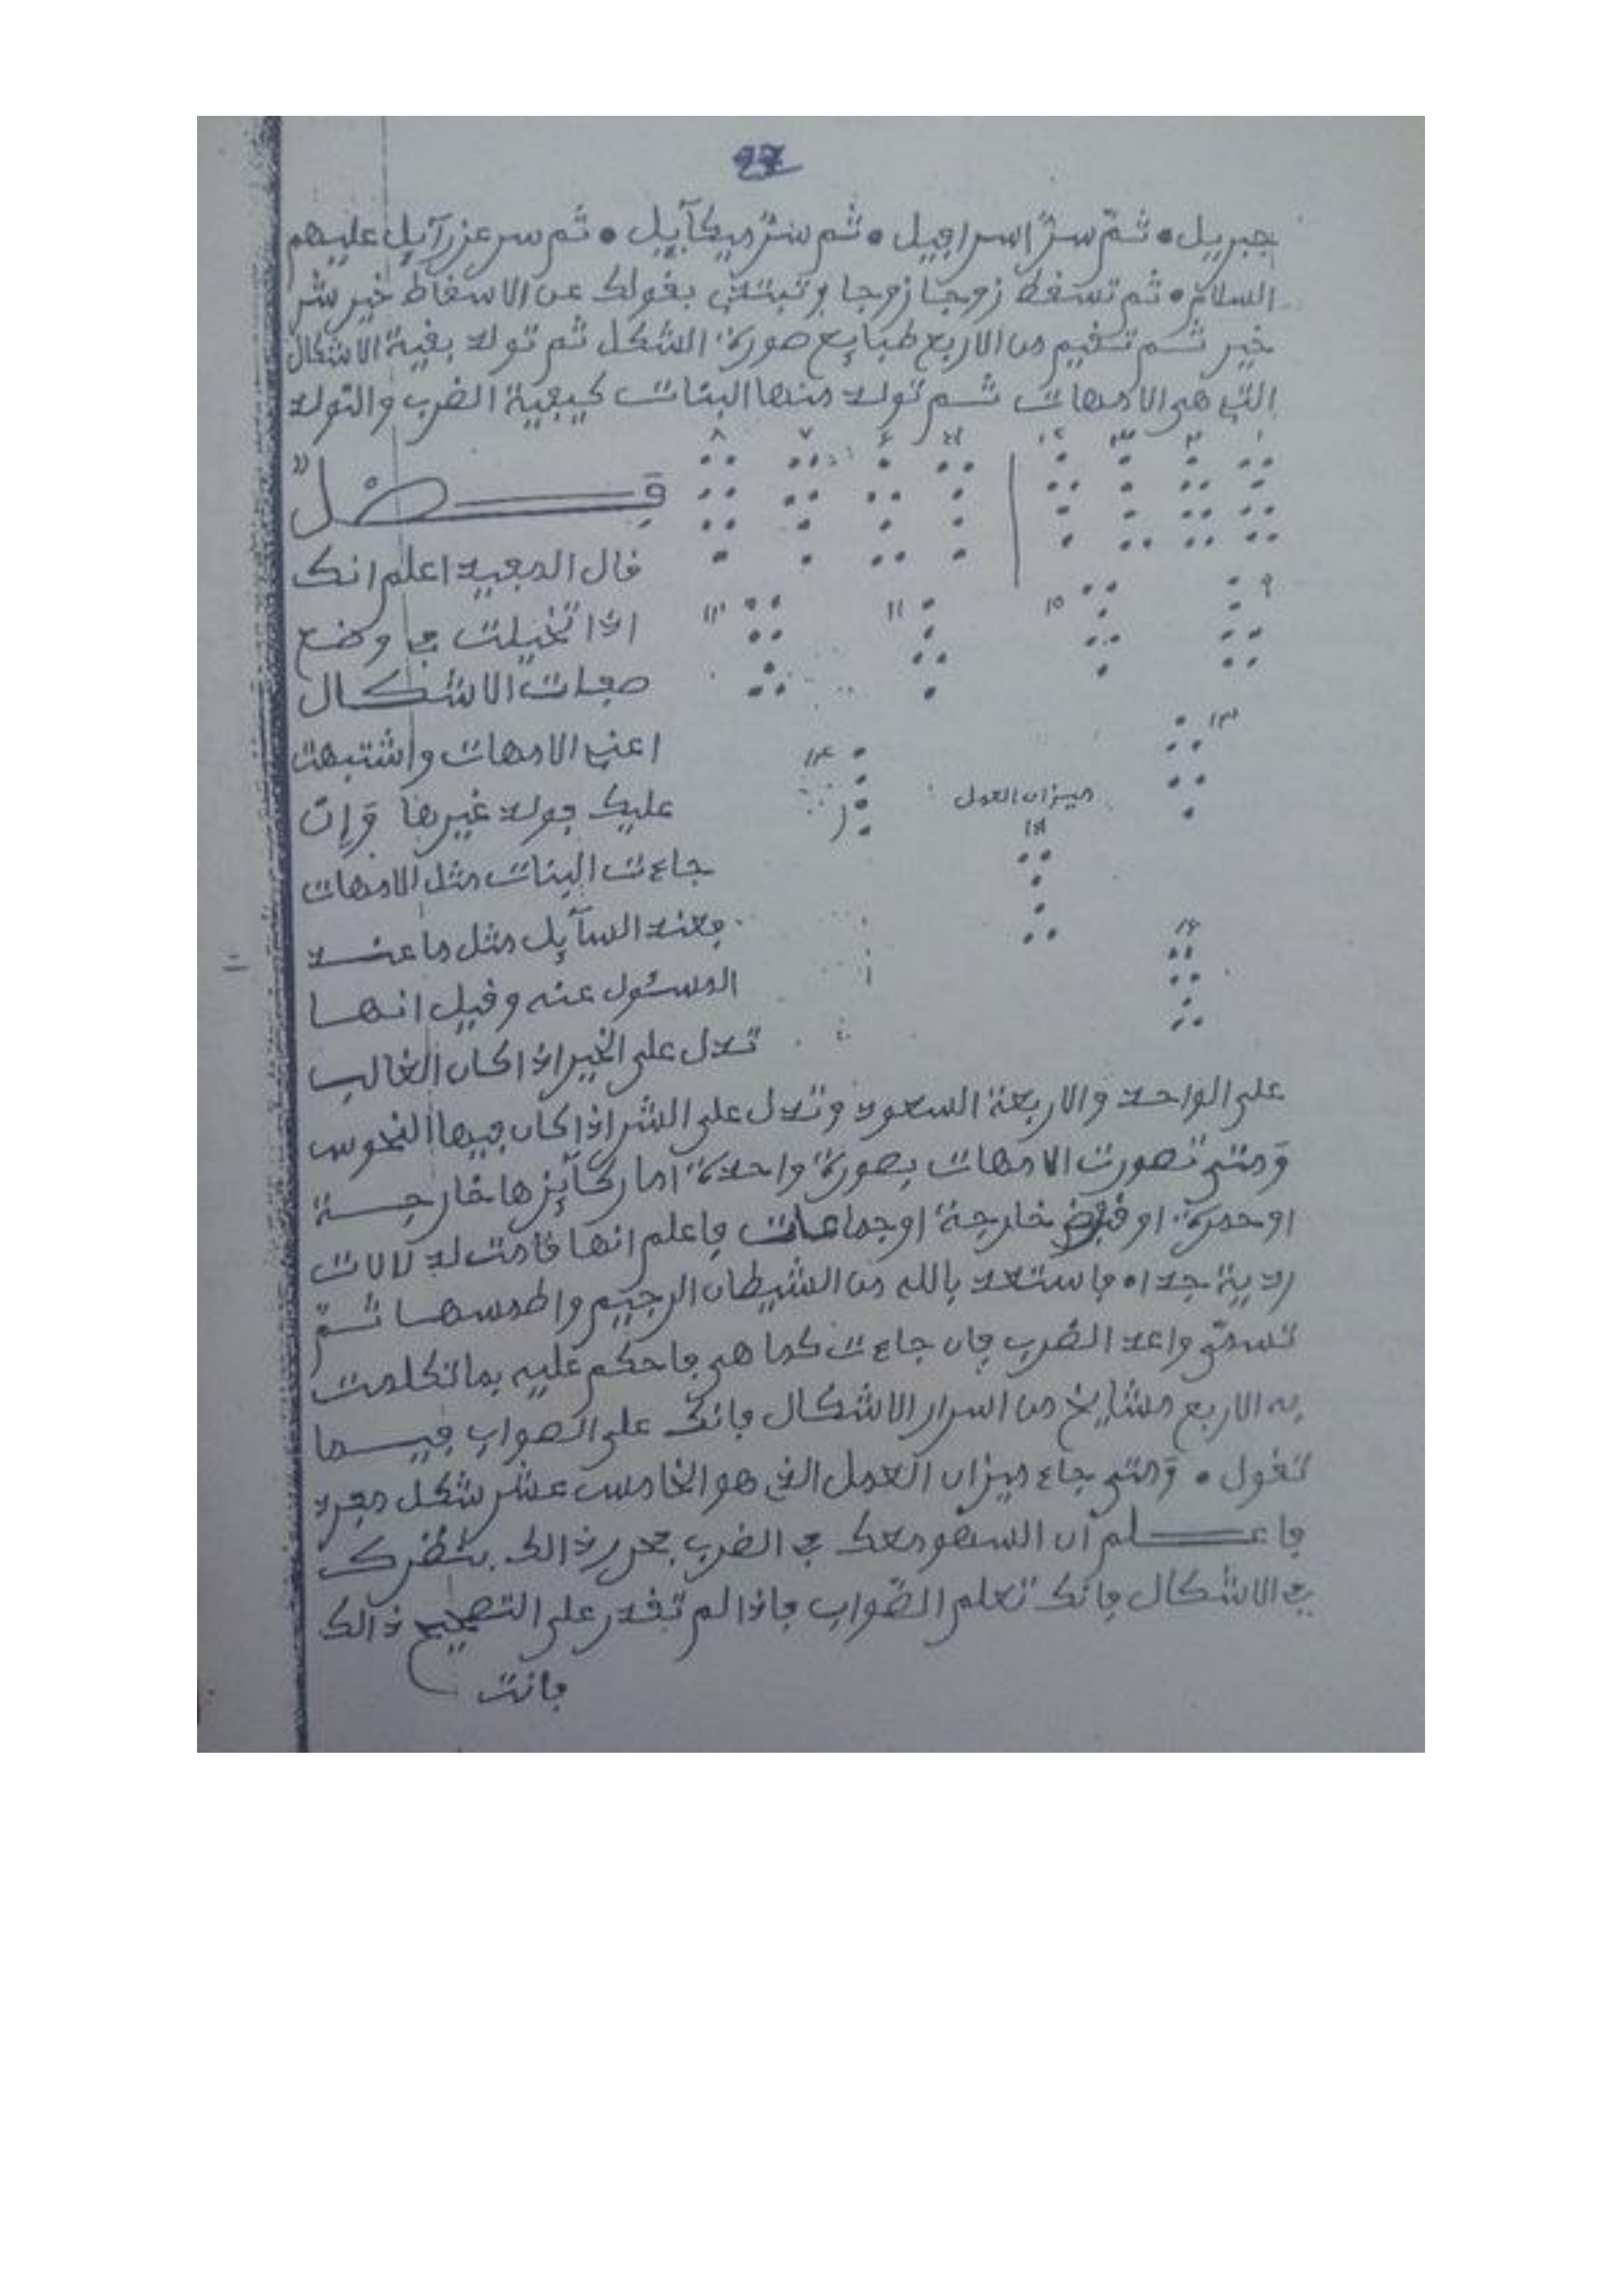 27
جبريل • ثم سر اسرافيل • ثم سر ميكآييل • ثم سر عزرآيل عليهم
السلام • ثم تسقط زوجا زوجا وتبتدئ بقولك عن الاسقاط خير شر
خير ثم تقيم من الاربع طبايع صورة الشكل ثم تولد بقية الاشكال
التي هي الامهات ثم تولد منها البنات كيفية الضرب والتولد
فصل
قال المفيد اعلم انك
اذا تخيلت في وضع
صفات الاشكال
اعني الامهات واشتبهت
عليك فولد غيرها وإن
جاءت البنات مثل الامهات
فعند السآيل مثل ما عند
المسئول عنه وقيل انها
تدل على الخير اذا كان الغالب
ميزان العدل
على الواحد والاربعة السعود وتدل على الشر اذا كان فيها النحوس
ومتى تصورت الامهات بصورة واحدة اما ركآيزها خارجة
او حمرة او قبض خارجة او جماعات فاعلم انها قامت لد لالات
ردية جدا • فاستعد بالله من الشيطان الرجيم واطمسها ثم
تسمى واعد الضرب فان جاءت كما هي فاحكم عليه بما تكلمت
به الاربع مشايخ من اسرار الاشكال فانك على الصواب فيما
تقول • ومتى جاء ميزان العدل الذي هو الخامس عشر شكل مفرد
فاعلم ان السهو معك في الضرب فحرر ذالك بنظرك
في الاشكال فانك تعلم الصواب فاذا لم تقدر على التصحيح ذالك
فانت